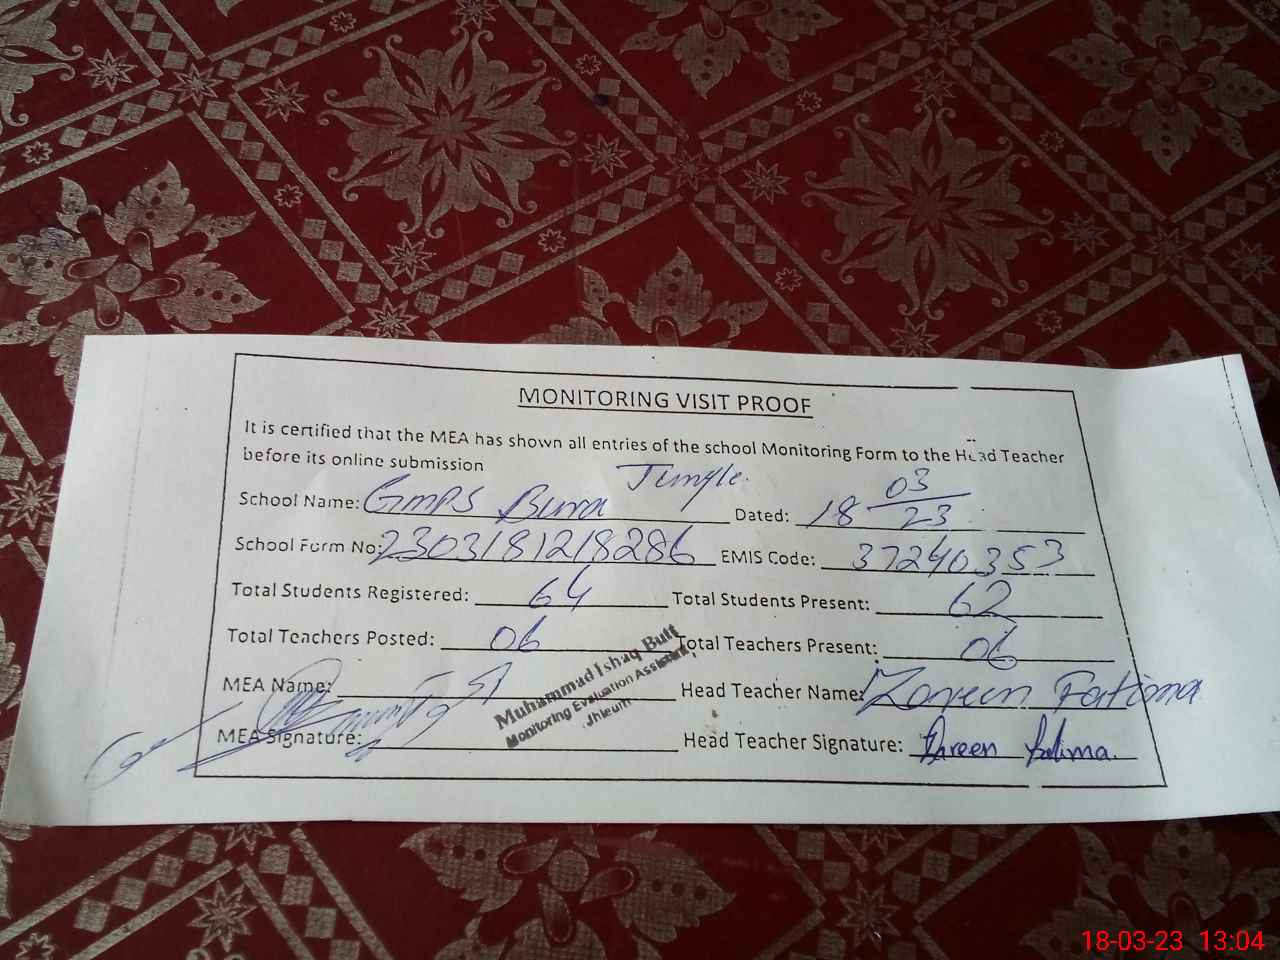 MONITORING VISIT PROOF
It is certified that the MEA has shown all entries of the school Monitoring Form to the Head Teacher
before its online submission
School Name: GMPS Bura Jungle. Dated: 18 03/23
School Form No: 2303181218286 EMIS Code: 37240353
Total Students Registered: 64 Total Students Present: 62
Total Teachers Posted: 06 Total Teachers Present: 06
MEA Name: Head Teacher Name: Zareen Fatima
MEA Signature: Head Teacher Signature: Zareen Fatima.
Muhammad Ishaq Butt
Monitoring Evaluation Assistant
Jhleum
18-03-23 13:04